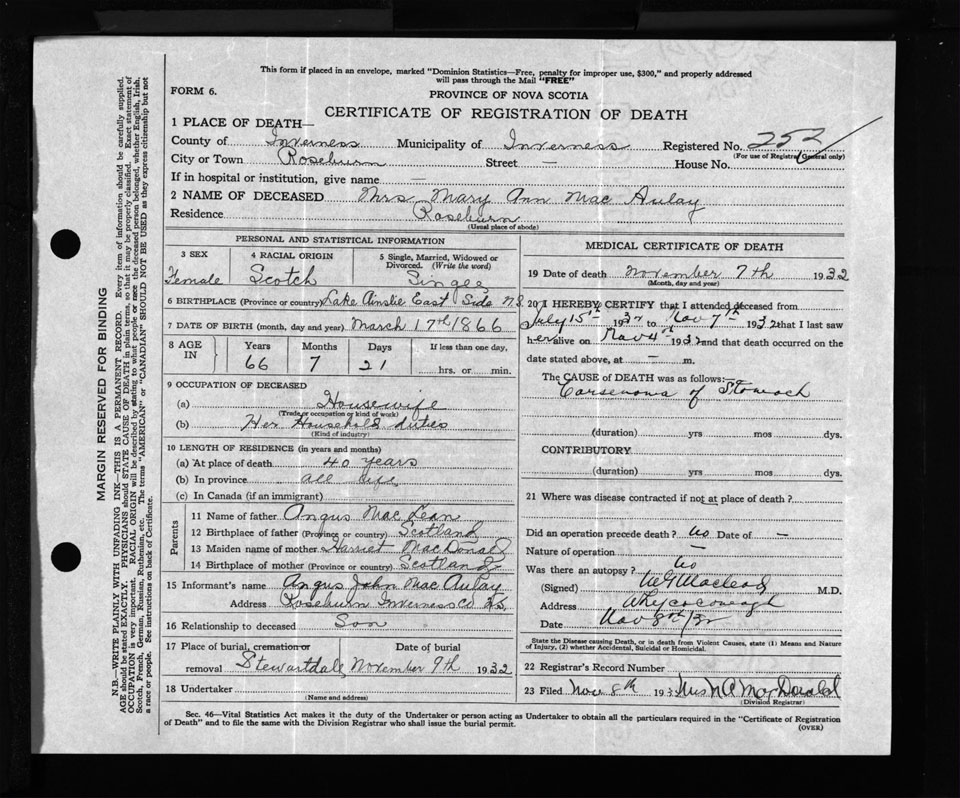 This form if placed in an envelope, marked "Dominion Statistics—Free, penalty for improper use, $300," and properly addressed
will pass through the Mail "FREE"
FORM 6.
PROVINCE OF NOVA SCOTIA
CERTIFICATE OF REGISTRATION OF DEATH
1 PLACE OF DEATH—
County of Inverness Municipality of Inverness Registered No. 252
(For use of Registrar General only)
City or Town Roseburn Street — House No.
If in hospital or institution, give name —
2 NAME OF DECEASED Mrs Mary Ann Mac Aulay
Residence Roseburn
(Usual place of abode)
PERSONAL AND STATISTICAL INFORMATION
3 SEX 4 RACIAL ORIGIN 5 Single, Married, Widowed or Divorced. (Write the word)
Female Scotch Single
6 BIRTHPLACE (Province or country) Lake Ainslie East Side N.S.
7 DATE OF BIRTH (month, day and year) March 17th 1866
8 AGE IN Years Months Days If less than one day,
66 7 21 hrs. or min.
9 OCCUPATION OF DECEASED
(a) Housewife
(Trade or occupation or kind of work)
(b) Her Household duties
(Kind of industry)
10 LENGTH OF RESIDENCE (in years and months)
(a) At place of death 40 years
(b) In province all life
(c) In Canada (if an immigrant)
Parents
11 Name of father Angus Mac Lean
12 Birthplace of father (Province or country) Scotland
13 Maiden name of mother Harriet MacDonald
14 Birthplace of mother (Province or country) Scotland
15 Informant's name Angus John Mac Aulay
Address Roseburn Inverness Co N.S.
16 Relationship to deceased Son
17 Place of burial, cremation or removal Date of burial
Stewartdale November 9th 1932
18 Undertaker
(Name and address)
MEDICAL CERTIFICATE OF DEATH
19 Date of death November 7th 1932
(Month, day and year)
20 I HEREBY CERTIFY that I attended deceased from
July 15th 1932 to Nov 7th 1932 that I last saw
her alive on Nov 4th 1932 and that death occurred on the
date stated above, at — m.
The CAUSE of DEATH was as follows:—
Carsenoma of Stomach
(duration) yrs mos dys.
CONTRIBUTORY
(duration) yrs mos dys.
21 Where was disease contracted if not at place of death?
Did an operation precede death? No Date of —
Nature of operation —
Was there an autopsy? No
(Signed) Macleod M.D.
Address Whycocomagh
Date Nov 8th/32
State the Disease causing Death, or in death from Violent Causes, state (1) Means and Nature
of Injury, (2) whether Accidental, Suicidal or Homicidal.
22 Registrar's Record Number
23 Filed Nov 8th 193 Mrs N A MacDonald
(Division Registrar)
Sec. 46—Vital Statistics Act makes it the duty of the Undertaker or person acting as Undertaker to obtain all the particulars required in the "Certificate of Registration
of Death" and to file the same with the Division Registrar who shall issue the burial permit.
(OVER)
MARGIN RESERVED FOR BINDING
N.B.—WRITE PLAINLY WITH UNFADING INK—THIS IS A PERMANENT RECORD. Every item of information should be carefully supplied.
AGE should be stated EXACTLY. PHYSICIANS should STATE CAUSE OF DEATH in plain terms, so that it may be properly classified. Exact statement of
OCCUPATION is very important. RACIAL ORIGIN will be described by stating to what people or race the deceased person belonged, whether English, Irish,
Scotch, French, German, Russian, Ruthenian, etc. The terms "AMERICAN" or "CANADIAN" SHOULD NOT BE USED as they express citizenship but not
a race or people. See instructions on back of Certificate.